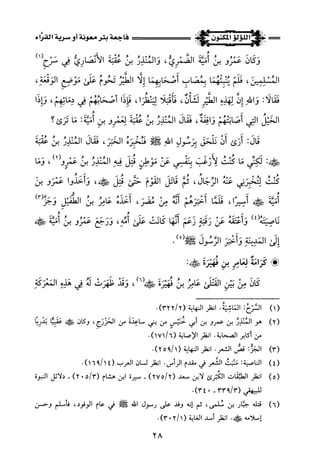 اللؤلؤ المكنون
فاجعة بئر معونة أو سرية القراء
وَكَانَ عَمْرُو بْنُ أُمَيَّةَ الضَّمْرِيُّ، وَالْمُنْذِرُ بنُ عُقْبَةَ الأَنْصَارِيُّ فِي سَرْحِ(١)
الْمُسْلِمِينَ، فَلَمْ يُنْبِئْهُمَا بِمُصَابِ أَصْحَابِهِمَا إِلَّا الطَّيْرُ تَحُومُ عَلَى مَوْضِعِ الْوَقْعَةِ،
فَقَالَا: وَاللهِ إِنَّ لِهَذِهِ الطَّيْرِ لَشَأْنًا، فَأَقْبَلَا لِيَنْظُرَا، فَإِذَا أَصْحَابُهُمْ فِي دِمَائِهِمْ، وَإِذَا
الْخَيْلُ التِي أَصَابَتْهُمْ وَاقِفَةٌ، فَقَالَ الْمُنْذِرُ بْنُ عُقْبَةَ لِعَمْرِو بْنِ أُمَيَّةَ: مَا تَرَى؟
قَالَ: أَرَى أَنْ نَلْحَقَ بِرَسُولِ اللهِ ﷺ فَنُخْبِرَهُ الْخَبَرَ، فَقَالَ الْمُنْذِرُ بْنُ عُقْبَةَ
: لَكِنِّي مَا كُنْتُ لِأَرْغَبَ بِنَفْسِي عَنْ مَوْطِنٍ قُتِلَ فِيهِ الْمُنْذِرُ بْنُ عَمْرٍو(٢)، وَمَا
كُنْتُ لِتُخْبِرَنِي عَنْهُ الرِّجَالُ، ثُمَّ قَاتَلَ الْقَوْمَ حَتَّى قُتِلَ، وَأَخَذُوا عَمْرَو بنَ
أُمَيَّةَ أَسِيرًا، فَلَمَّا أَخْبَرَهُمْ أَنَّهُ مِنْ مُضَرَ، أَخَذَهُ عَامِرُ بْنُ الطُّفَيْلِ، وَجَزَّ(٣)
نَاصِيَتَهُ(٤) وَأَعْتَقَهُ عَنْ رَقَبَةٍ زَعَمَ أَنَّهَا كَانَتْ عَلَى أُمِّهِ، وَرَجَعَ عَمْرُو بْنُ أُمَيَّةَ
إِلَى الْمَدِينَةِ وَأَخْبَرَ الرَّسُولَ ﷺ(٥).
كَرَامَةٌ لِعَامِرِ بنِ فُهَيْرَةَ :
كَانَ مِنْ بَيْنِ الْقَتْلَى عَامِرُ بنُ فُهَيْرَةَ (٦)، وَقَدْ ظَهَرَتْ لَهُ فِي هَذِهِ الْمَعْرَكَةِ
(١) السَّرْحُ: الْمَاشِيَةُ. انظر النهاية (٣٢٢/٢).
(٢) هو الْمُنْذِرُ بن عمرو بن أبي خُنَيْسٍ من بني سَاعِدَةَ من الخَزْرَجِ، وكان عَقَبِيًّا بَدْرِيًّا
من أكابر الصحابة. انظر الإصابة (١٧١/٦).
(٣) الجَزُّ: قصُّ الشعر. انظر النهاية (٢٥٩/١).
(٤) النَّاصِيَةُ: مَنْبَتُ الشَّعر في مقدم الرأس. انظر لسان العرب (١٦٩/١٤).
(٥) انظر الطَّبَقَات الكُبْرَى لابن سعد (٢٧٥/٢) - سيرة ابن هشام (٢٠٥/٣) - دلائل النبوة
للبيهقي (٣٣٩/٣ - ٣٤٠).
(٦) قتله جَبَّار بن سُلمى، ثم إنه وفد على رسول الله ﷺ في عام الوفود، فأسلم وحسن
إسلامه . انظر أسد الغابة (٣٠٢/١).
٢٨